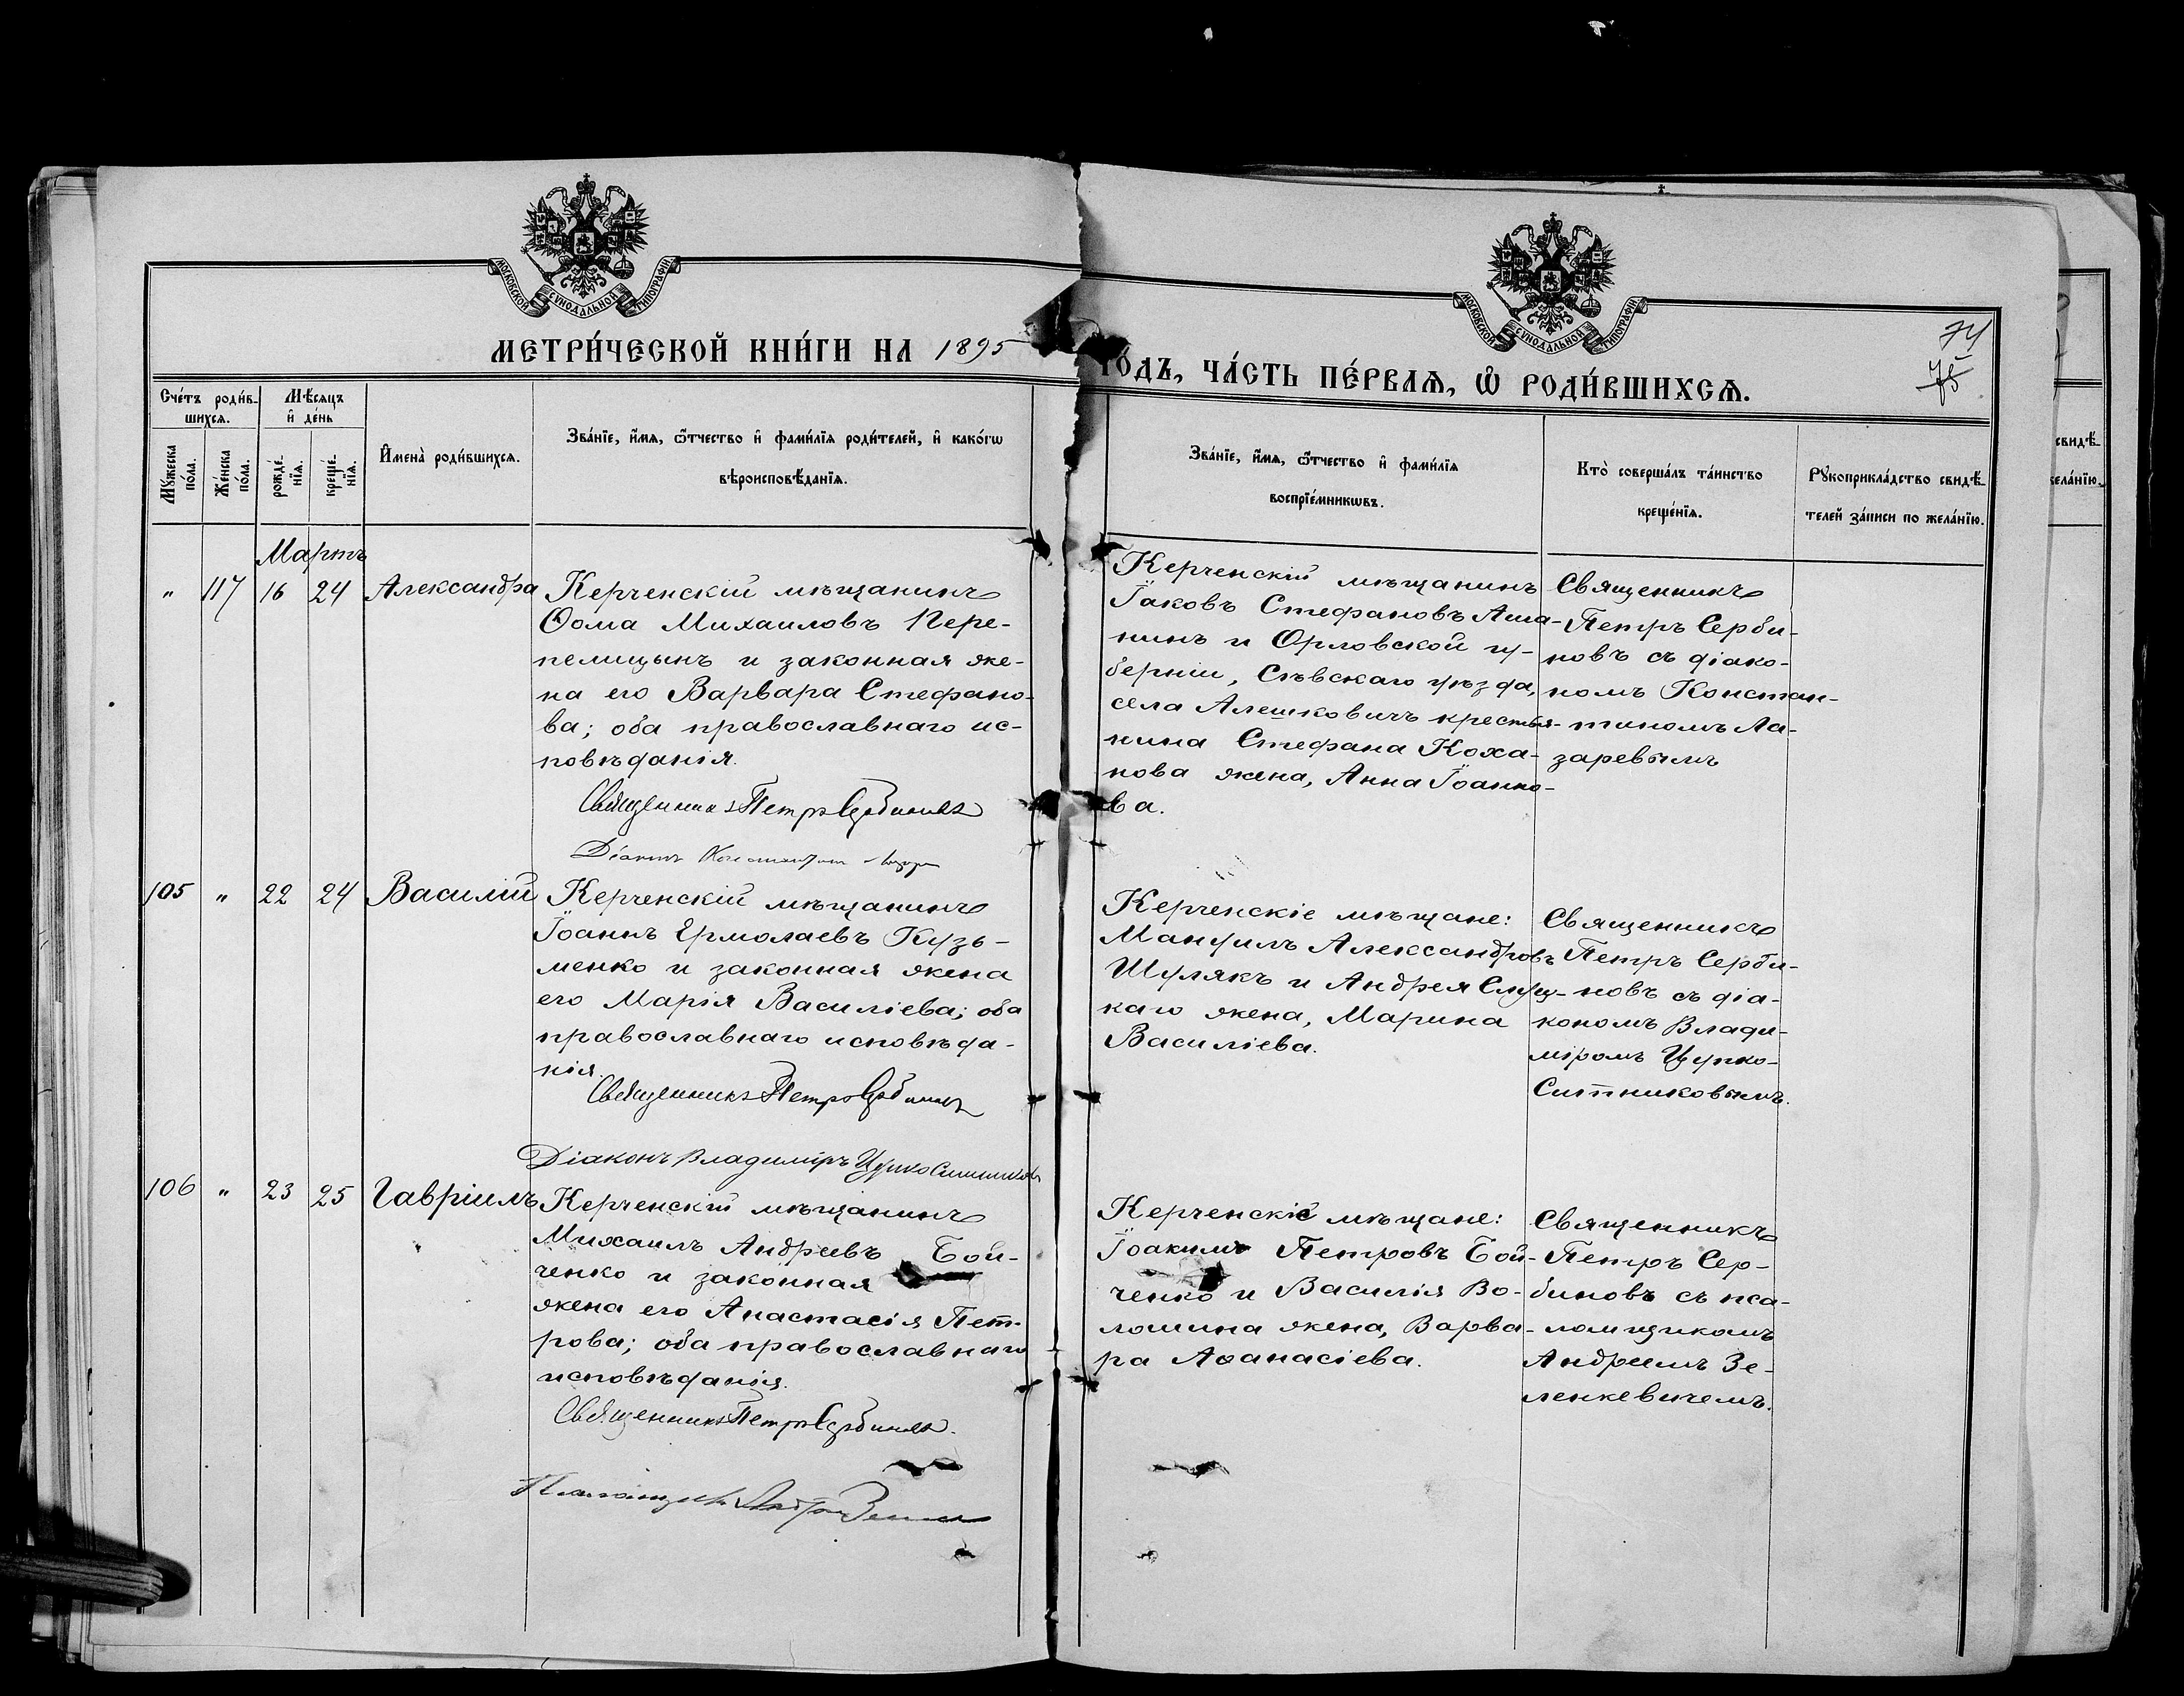 МОСКОВСКОЙ СѴНОДАЛЬНОЙ ТИПОГРАФІИ
МОСКОВСКОЙ СѴНОДАЛЬНОЙ ТИПОГРАФІИ
74
75
МЕТРИ́ЧЕСКОЙ КНИ́ГИ НА 1895 ГО́ДЪ, ЧА́СТЬ ПЕ́РВАѦ, Ѡ҆ РОДИ́ВШИХСѦ.
Сче́тъ роди́в-
шихсѧ.
Мꙋ́жеска по́ла.
Же́нска по́ла.
Мѣ́сѧцъ
и҆ де́нь
рожде́-нїѧ.
креще́-нїѧ.
И҆мена̀ роди́вшихсѧ.
Зва́нїе, и҆́мѧ, ѻ҆́тчество и҆ фами́лїѧ роди́телей, и҆ како́гѡ
вѣроисповѣ́данїѧ.
Зва́нїе, и҆́мѧ, ѻ҆́тчество и҆ фами́лїѧ
воспрїе́мникѡвъ.
Кто̀ соверша́лъ та́инство
креще́нїѧ.
Рꙋкоприкла́дство свидѣ́-
телей за́писи по жела́нїю.
свидѣ́-
жела́нїю.
Мартъ
" 117 16 24 Александра
Керченскій мѣщанинъ
Ѳома Михаиловъ Пере-
пелицынъ и законная же-
на его Варвара Стефано-
ва; оба православнаго ис-
повѣданія.
Священникъ Петръ Сербиновъ
Діаконъ Константинъ
Керченскій мѣщанинъ
Іаковъ Стефановъ Аша-
нинъ и Орловской гу-
берніи, Сѣвскаго уѣзда,
села Алешковичъ крестья-
нина Стефана Коха-
нова жена, Анна Іоанно-
ва.
Священникъ
Петръ Серби-
новъ съ діако-
номъ Констан-
тиномъ Ла-
заревымъ
105 " 22 24 Василій
Керченскій мѣщанинъ
Іоаннъ Ермолаевъ Кузь-
менко и законная жена
его Марія Василіева; оба
православнаго исповѣда-
нія.
Священникъ Петръ Сербиновъ
Діаконъ Владиміръ Цупко Ситниковъ
Керченскіе мѣщане:
Мануилъ Александровъ
Шулякъ и Андрея Слуц-
каго жена, Марина
Василіева.
Священникъ
Петръ Серби-
новъ съ діа-
кономъ Влади-
міромъ Цупко-
Ситниковымъ.
106 " 23 25 Гавріилъ
Керченскій мѣщанинъ
Михаилъ Андреевъ Бой-
ченко и законная
жена его Анастасія Пет-
рова; оба православнаго
исповѣданія.
Священникъ Петръ Сербиновъ.
Псаломщикъ Андрей
Керченскіе мѣщане:
Іоакимъ Петровъ Бой-
ченко и Василія Во-
лошина жена, Варва-
ра Аѳанасіева.
Священникъ
Петръ Сер-
биновъ съ пса-
ломщикомъ
Андреемъ Зе-
ленкевичемъ.